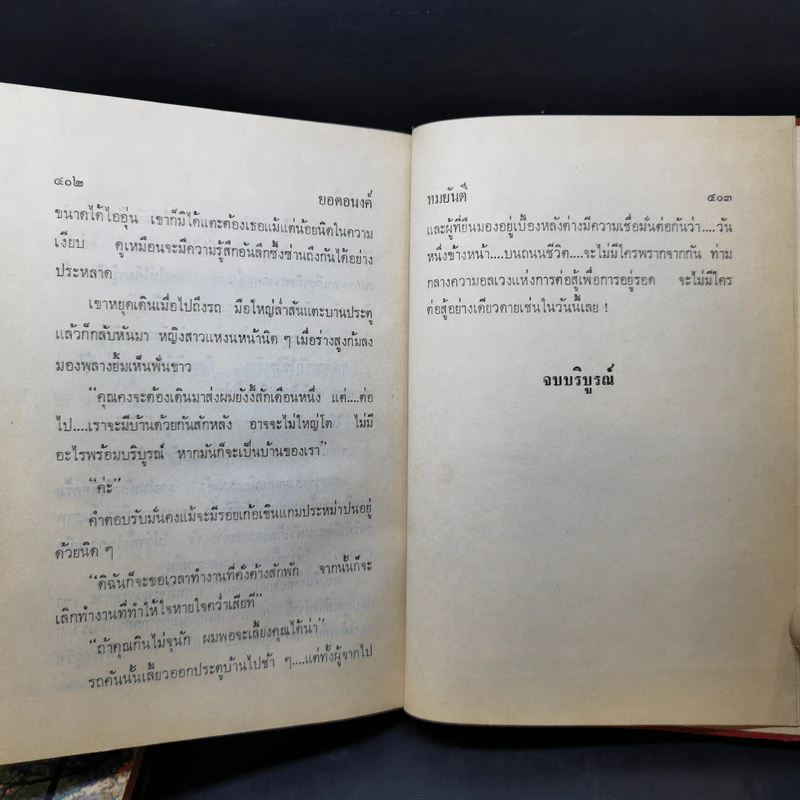 ๔๐๒
ยอดอนงค์
ขนาดได้ไออุ่น เขาก็มิได้แตะต้องเธอแม้แต่น้อยนิดในความ
เงียบ ดูเหมือนจะมีความรู้สึกอันลึกซึ้งซ่านถึงกันได้อย่าง
ประหลาด
เขาหยุดเดินเมื่อไปถึงรถ มือใหญ่ล่ำสันแตะบานประตู
แล้วก็กลับหันมา หญิงสาวแหงนหน้านิด ๆ เมื่อร่างสูงก้มลง
มองพลางยิ้มเห็นฟันขาว
“คุณคงจะต้องเดินมาส่งผมยังงี้สักเดือนหนึ่ง แต่....ต่อ
ไป....เราจะมีบ้านด้วยกันสักหลัง อาจจะไม่ใหญ่โต ไม่มี
อะไรพร้อมบริบูรณ์ หากมันก็จะเป็นบ้านของเรา”
“ค่ะ”
คำตอบรับมั่นคงแม้จะมีรอยเก้อเขินแกมประหม่าปนอยู่
ด้วยนิด ๆ
“ดิฉันก็จะขอเวลาทำงานที่คั่งค้างสักพัก จากนั้นก็จะ
เลิกทำงานที่ทำให้ใจหายใจคว่ำเสียที”
“ถ้าคุณกินไม่จุนัก ผมพอจะเลี้ยงคุณได้น่า”
รถคันนั้นเลี้ยวออกประตูบ้านไปช้า ๆ....แต่ทั้งผู้จากไป
ทมยันตี
๔๐๓
และผู้ที่ยืนมองอยู่เบื้องหลังต่างมีความเชื่อมั่นต่อกันว่า....วัน
หนึ่งข้างหน้า....บนถนนชีวิต....จะไม่มีใครพรากจากกัน ท่าม
กลางความอลเวงแห่งการต่อสู้เพื่อการอยู่รอด จะไม่มีใคร
ต่อสู้อย่างเดียวดายเช่นในวันนี้เลย !
จบบริบูรณ์